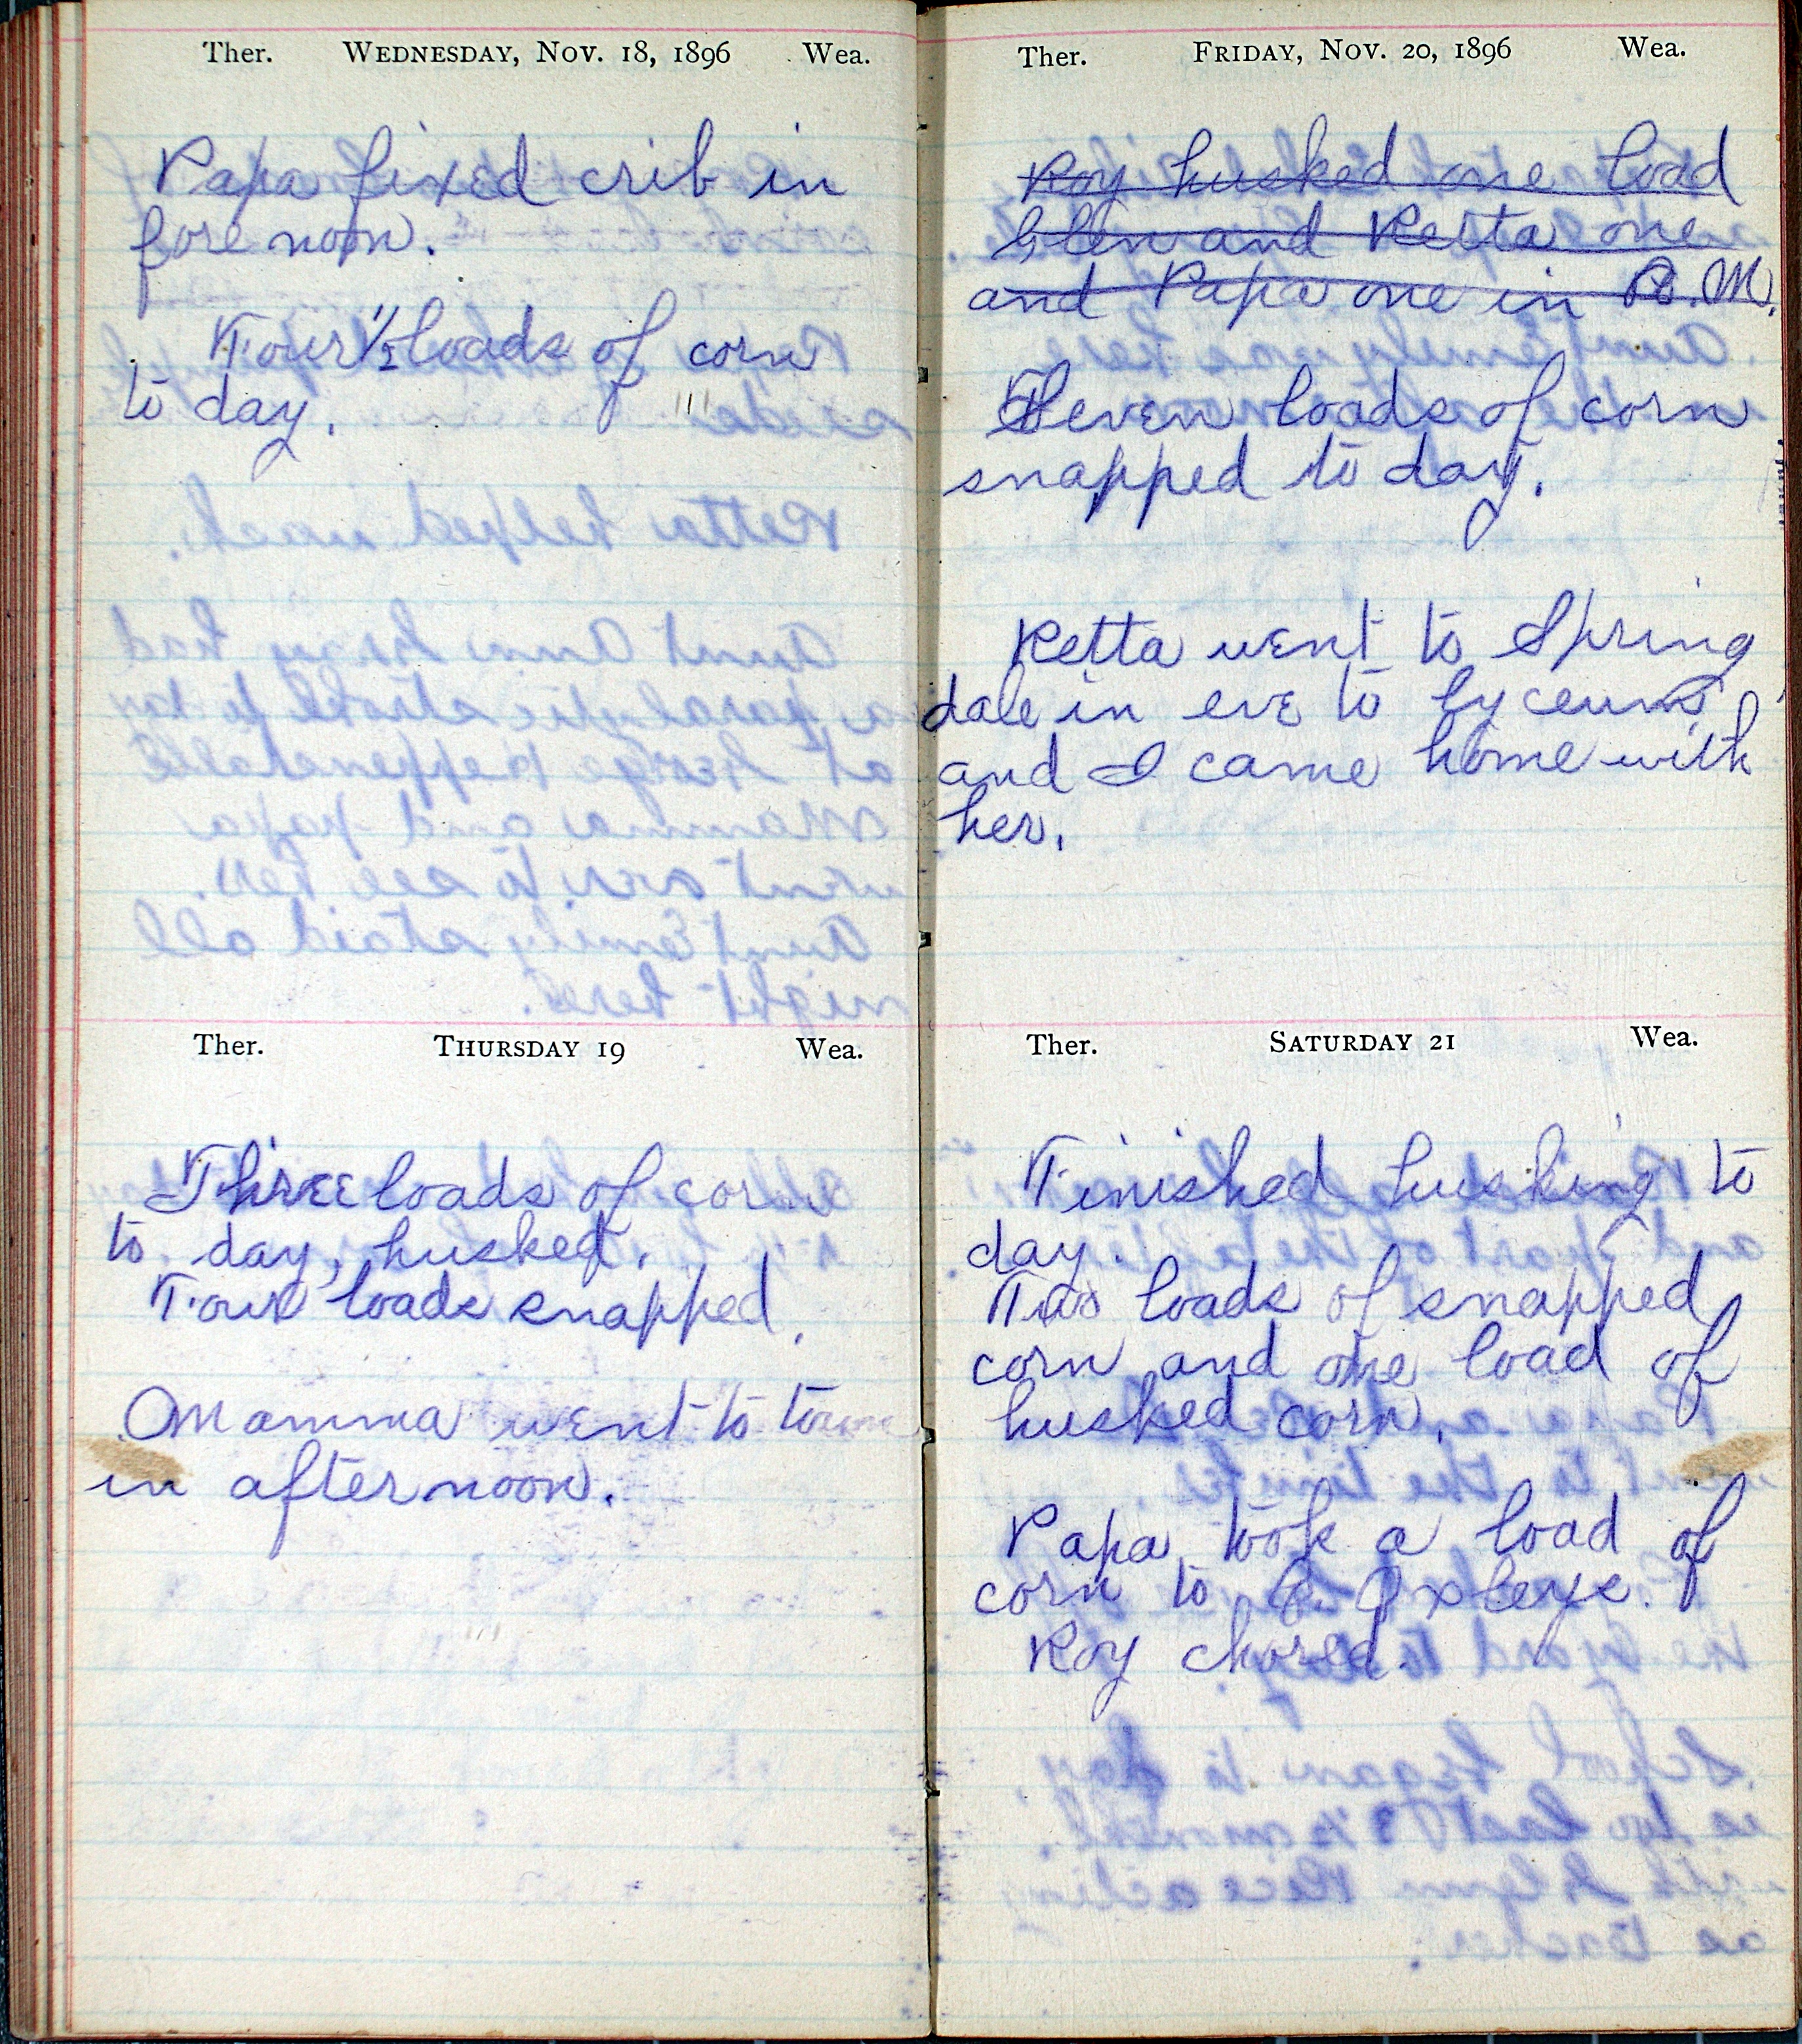 Ther. WEDNESDAY, NOV. 18, 1896 Wea.
Papa fixed crib in
fore noon.
Four 1/2 loads of corn
to day.
Ther. THURSDAY 19 Wea.
Three loads of corn
to day, husked.
Four loads snapped.
Mamma went to town
in afternoon.
Ther. FRIDAY, NOV. 20, 1896 Wea.
Roy husked one load
Glen and Retta one
and Papa one in P.M.
Seven loads of corn
snapped to day.
Retta went to Spring
dale in eve to lyceum
and I came home with
her.
Ther. SATURDAY 21 Wea.
Finished husking to
day.
Two loads of snapped
corn and one load of
husked corn.
Papa took a load of
corn to Oxleys.
Roy chored.